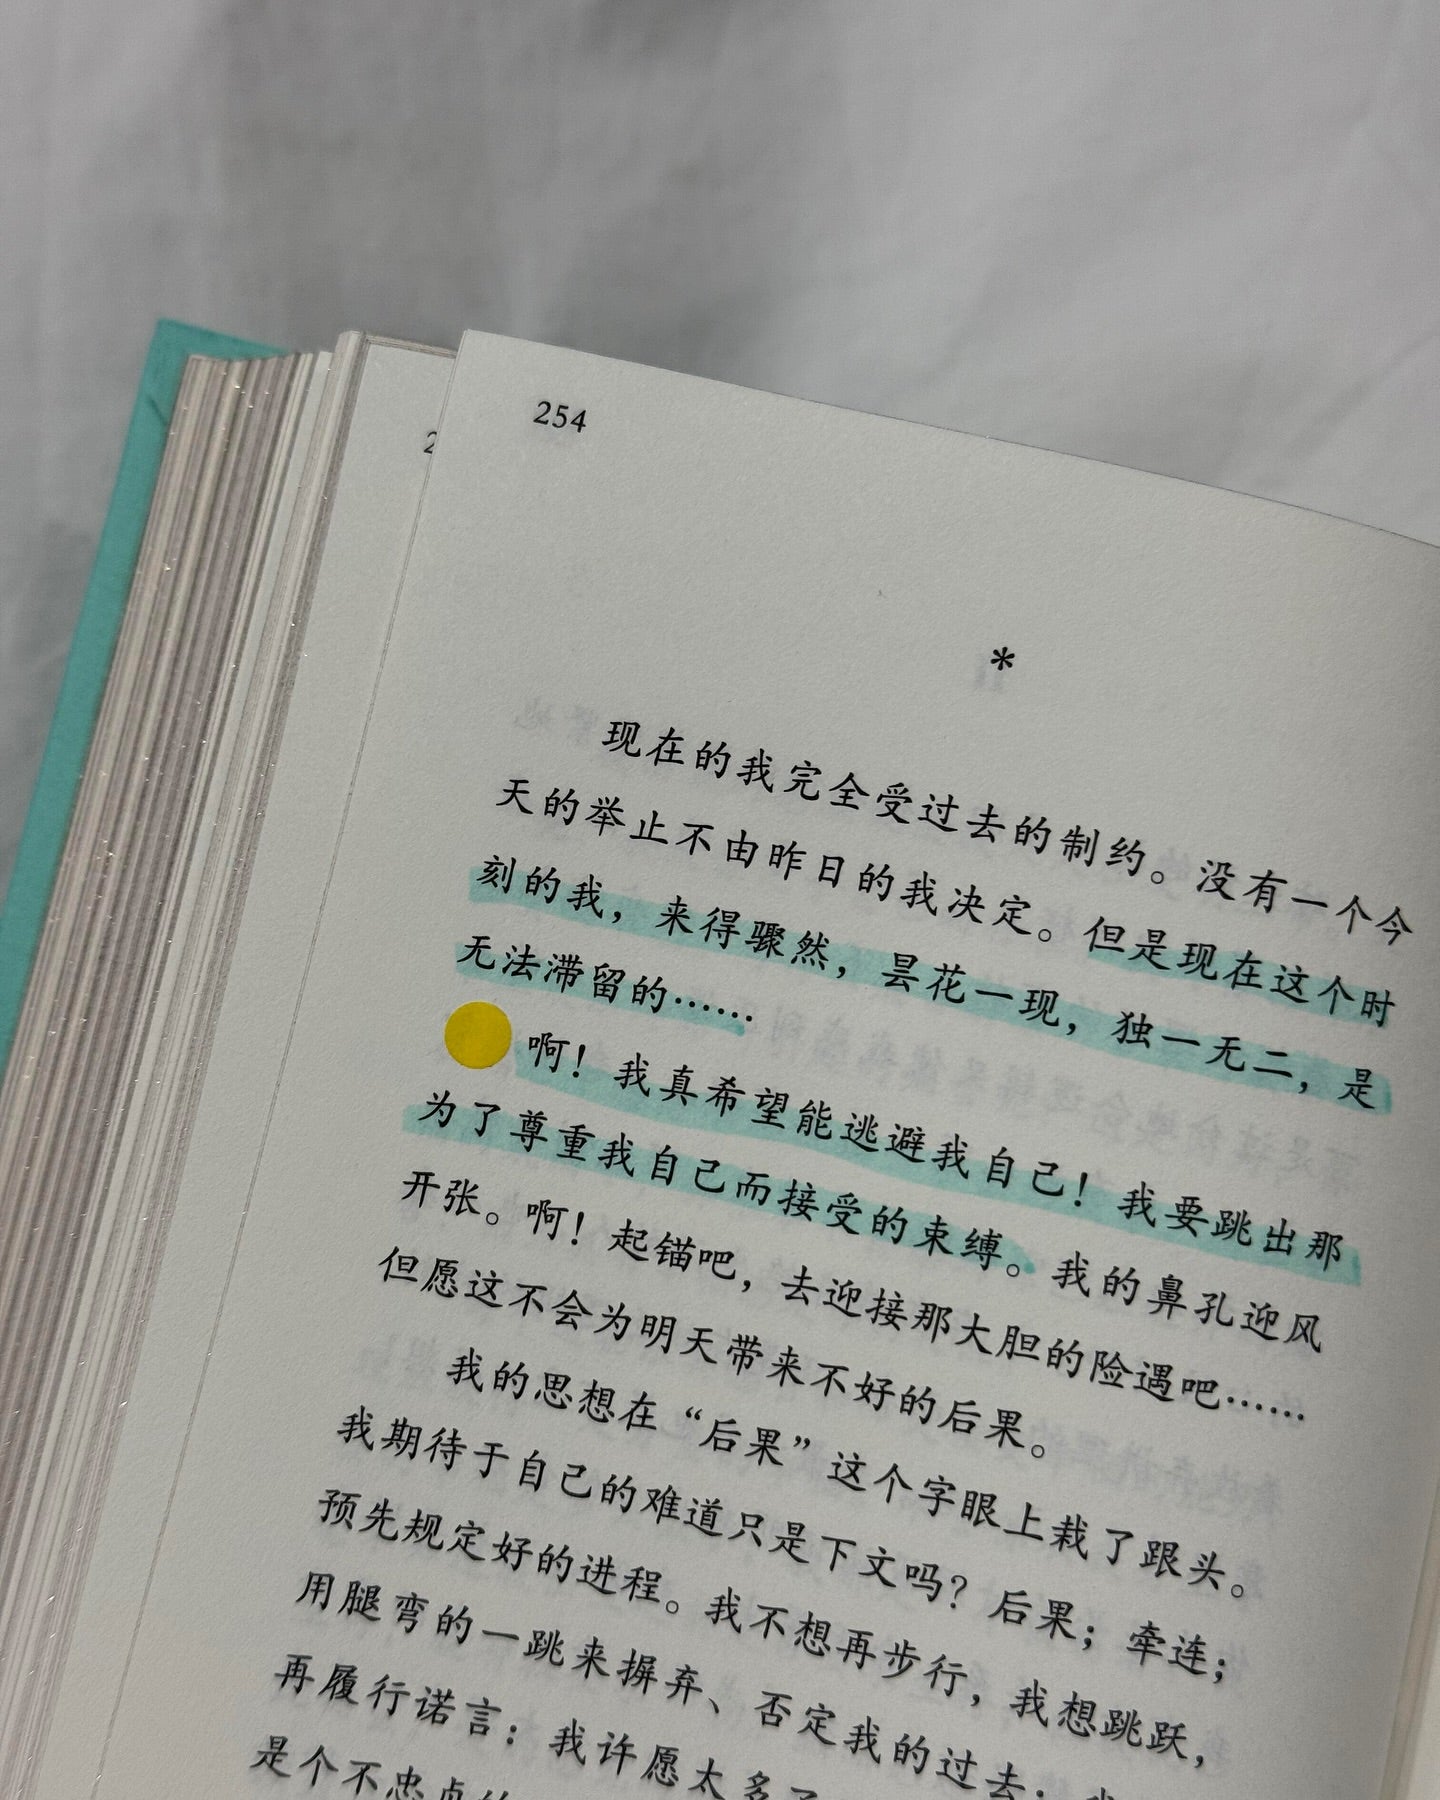 254
2
*
现在的我完全受过去的制约。没有一个今
天的举止不由昨日的我决定。但是现在这个时
刻的我，来得骤然，昙花一现，独一无二，是
无法滞留的……
啊！我真希望能逃避我自己！我要跳出那
为了尊重我自己而接受的束缚。我的鼻孔迎风
开张。啊！起锚吧，去迎接那大胆的险遇吧……
但愿这不会为明天带来不好的后果。
我的思想在“后果”这个字眼上栽了跟头。
我期待于自己的难道只是下文吗？后果；牵连；
预先规定好的进程。我不想再步行，我想跳跃，
用腿弯的一跳来摒弃、否定我的过去；
再履行诺言：我许愿太多了
是个不忠贞的